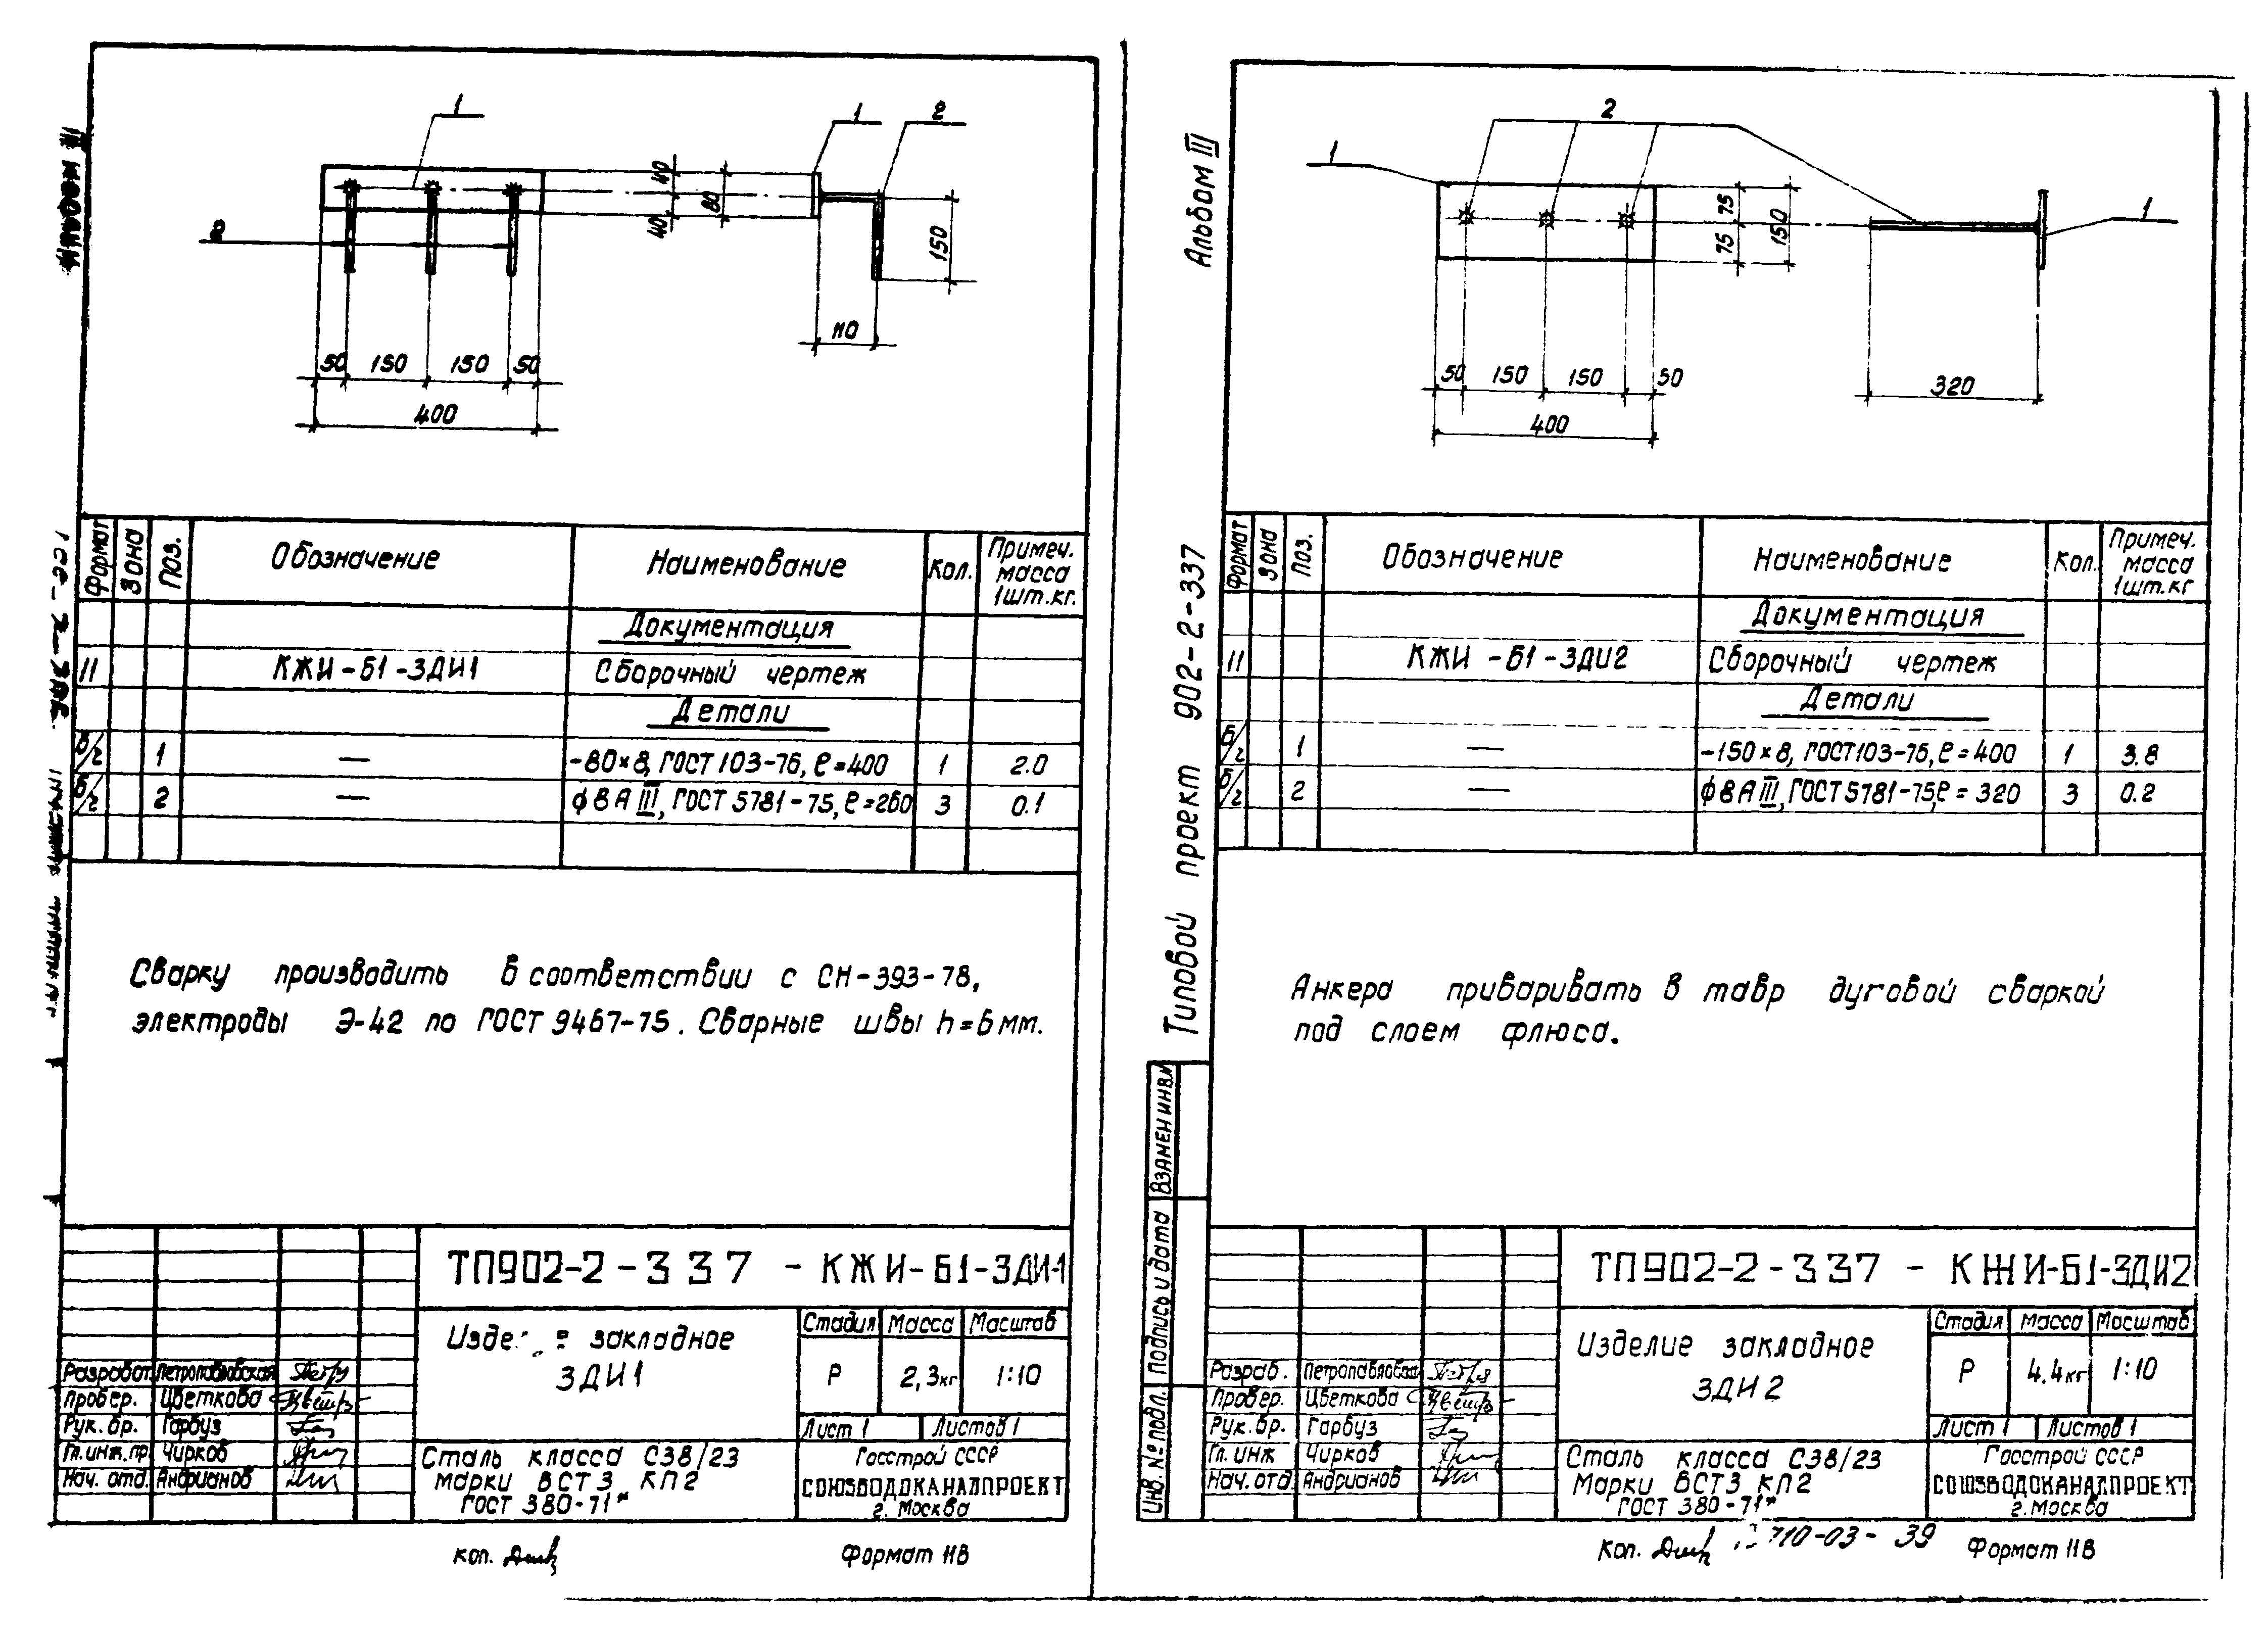 1
1
2
2
40
40
80
150
110
50 150 150 50
400
Формат Зона Поз. Обозначение Наименование Кол. Примеч. масса 1шт.кг.
Документация
11 КЖИ-Б1-ЗДИ1 Сборочный чертеж
Детали
б/г 1 — -80×8, ГОСТ 103-76, ℓ=400 1 2.0
б/г 2 — ф8АIII, ГОСТ 5781-75, ℓ=260 3 0.1
Сварку производить в соответствии с СН-393-78,
электроды Э-42 по ГОСТ 9467-75. Сварные швы h=6мм.
ТП902-2-337 - КЖИ-Б1-ЗДИ1
закладное
ЗДИ1
Стадия Масса Масштаб
Р 2,3кг 1:10
Лист 1 Листов 1
Разработ. Петропавловская
Провер. Цветкова
Рук. бр. Гарбуз
Гл.инж.пр. Чирков
Нач. отд. Андрианов
Сталь класса С38/23
марки ВСТ3 КП2
ГОСТ 380-71*
Госстрой СССР
СОЮЗВОДОКАНАЛПРОЕКТ
г. Москва
Коп.
Формат 11В
Альбом III
Типовой проект 902-2-337
Взамен инв.№
Подпись и дата
Инв. № подл.
2
1
1
75
75
150
50 150 150 50
400
320
Формат Зона Поз. Обозначение Наименование Кол. Примеч. масса 1шт.кг
Документация
11 КЖИ-Б1-ЗДИ2 Сборочный чертеж
Детали
б/г 1 — -150×8, ГОСТ 103-76, ℓ=400 1 3.8
б/г 2 — ф8АIII, ГОСТ 5781-75, ℓ=320 3 0.2
Анкера приваривать в тавр дуговой сваркой
под слоем флюса.
ТП902-2-337 - КЖИ-Б1-ЗДИ2
Изделие закладное
ЗДИ2
Стадия Масса Масштаб
Р 4.4кг 1:10
Лист 1 Листов 1
Разраб. Петропавловская
Провер. Цветкова
Рук. бр. Гарбуз
Гл. инж Чирков
Нач. отд. Андрианов
Сталь класса С38/23
Марки ВСТ3 КП2
ГОСТ 380-71*
Госстрой СССР
СОЮЗВОДОКАНАЛПРОЕКТ
г. Москва
Коп.
710-03- 39
Формат 11В